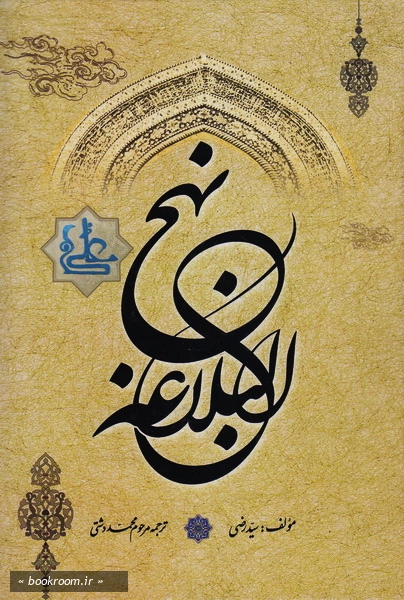 نهج
البلاغه
علی
مؤلف: سیّد رضی
ترجمه مرحوم محمّد دشتی
« bookroom.ir »